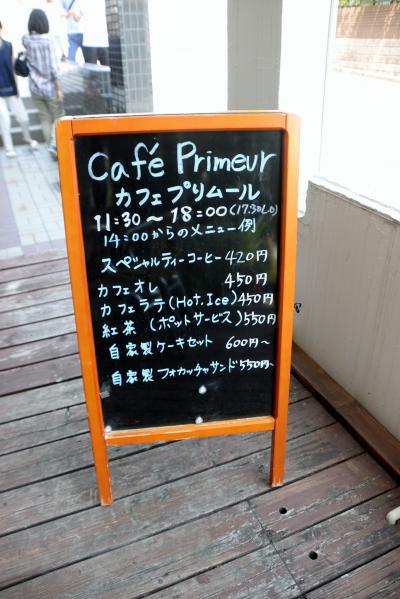 Café Primeur
カフェ プリムール
11:30～18:00(17:30L.O)
14:00からのメニュー例
スペシャルティーコーヒー 420円
カフェオレ 450円
カフェラテ(Hot.Ice)450円
紅茶 (ポットサービス)550円
自家製ケーキセット 600円～
自家製フォカッチャサンド550円～